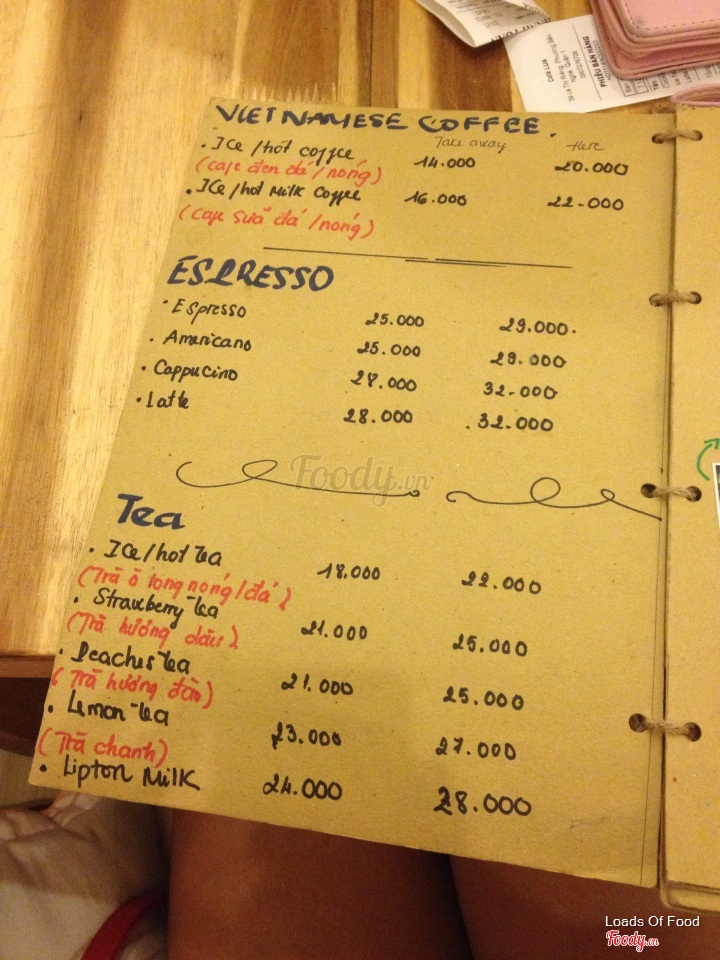 Cafe LUA
PHIẾU BÁN HÀNG
VIETNAMESE COFFEE.
Take away Here
. Ice/hot coffee 14.000 20.000
(cafe đen đá/nóng)
. Ice/hot Milk Coffee 16.000 22.000
(cafe sữa đá/nóng)
ESPRESSO
. Espresso 25.000 29.000.
. Americano 25.000 29.000
. Cappucino 28.000 32.000
. Latte 28.000 32.000
Foody.vn
Tea
. Ice/hot tea 18.000 22.000
(Trà ô long nóng/đá)
. Strawberry tea 21.000 25.000
(Trà hương dâu)
. Peaches tea 21.000 25.000
(Trà hương đào)
. Lemon tea 23.000 27.000
(Trà chanh)
. Lipton Milk 24.000 28.000
Loads Of Food
Foody.vn